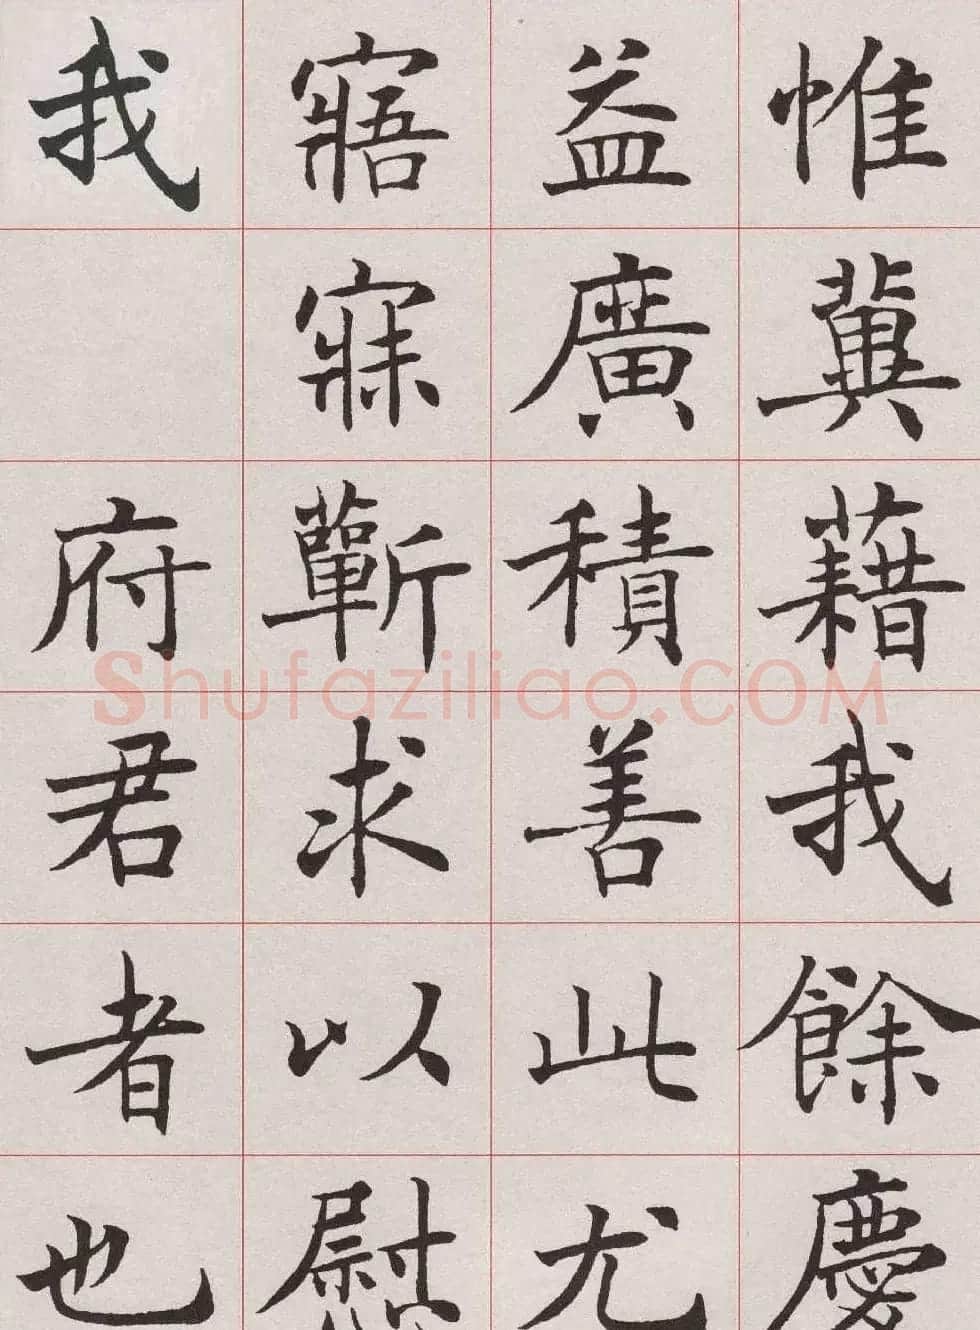 惟冀藉我餘慶
益廣積善此尤
寤寐蘄求以慰
我 府君者也
Shufaziliao.COM